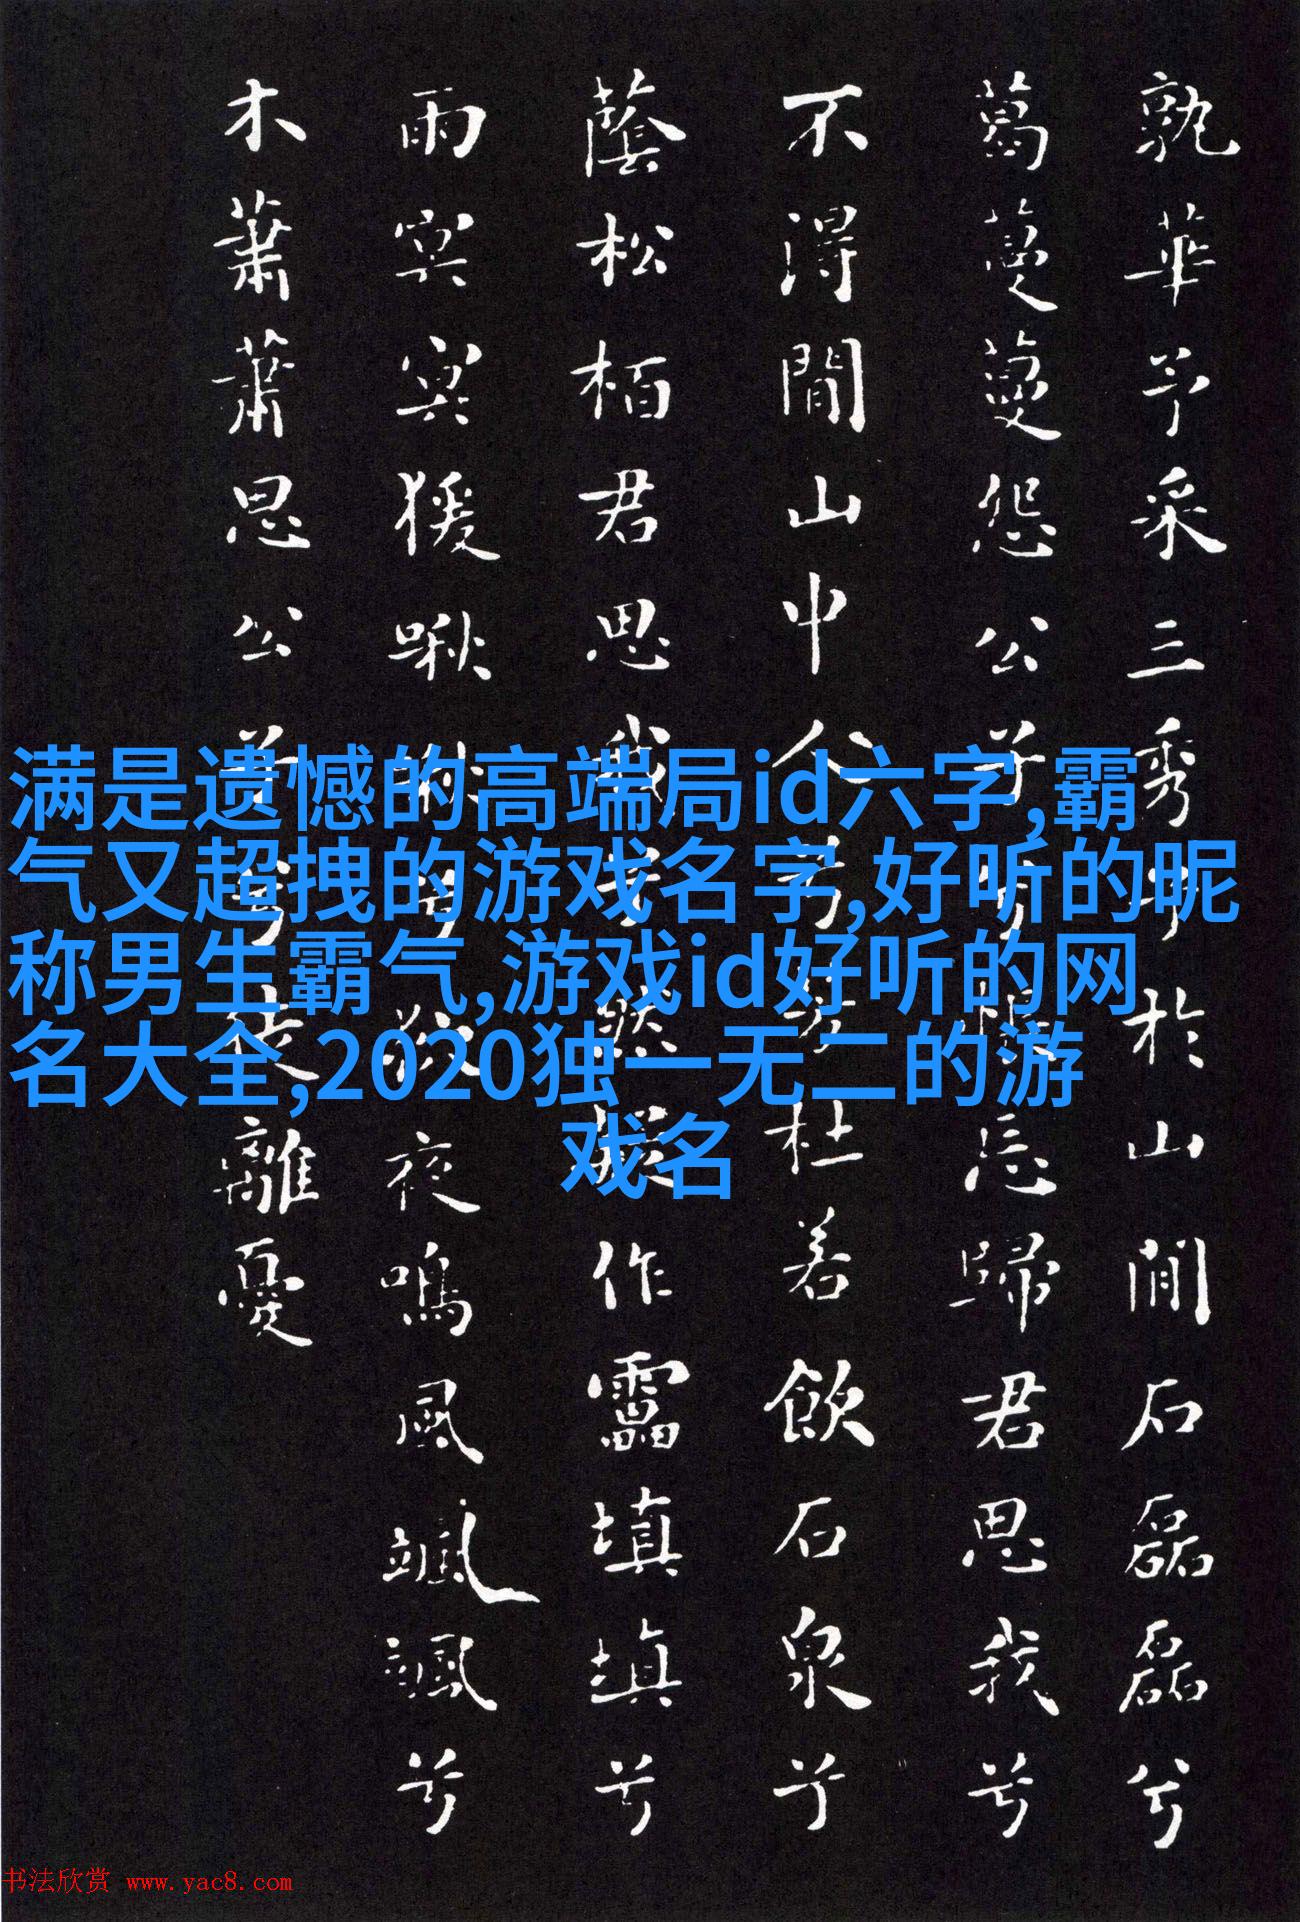 孰華予采三秀兮於山間石磊磊兮
葛蔓蔓怨公子兮悵忘歸君思我兮
不得間山中人兮芳杜若飲石泉兮
蔭松柏君思我兮然疑作靁填填兮
雨冥冥猨啾啾兮狖夜鳴風颯颯兮
木蕭蕭思公子兮徒離憂
满是遗憾的高端局id六字,霸
气又超拽的游戏名字,好听的昵
称男生霸气,游戏id好听的网
名大全,2020独一无二的游
戏名
书法欣赏 www.yac8.com